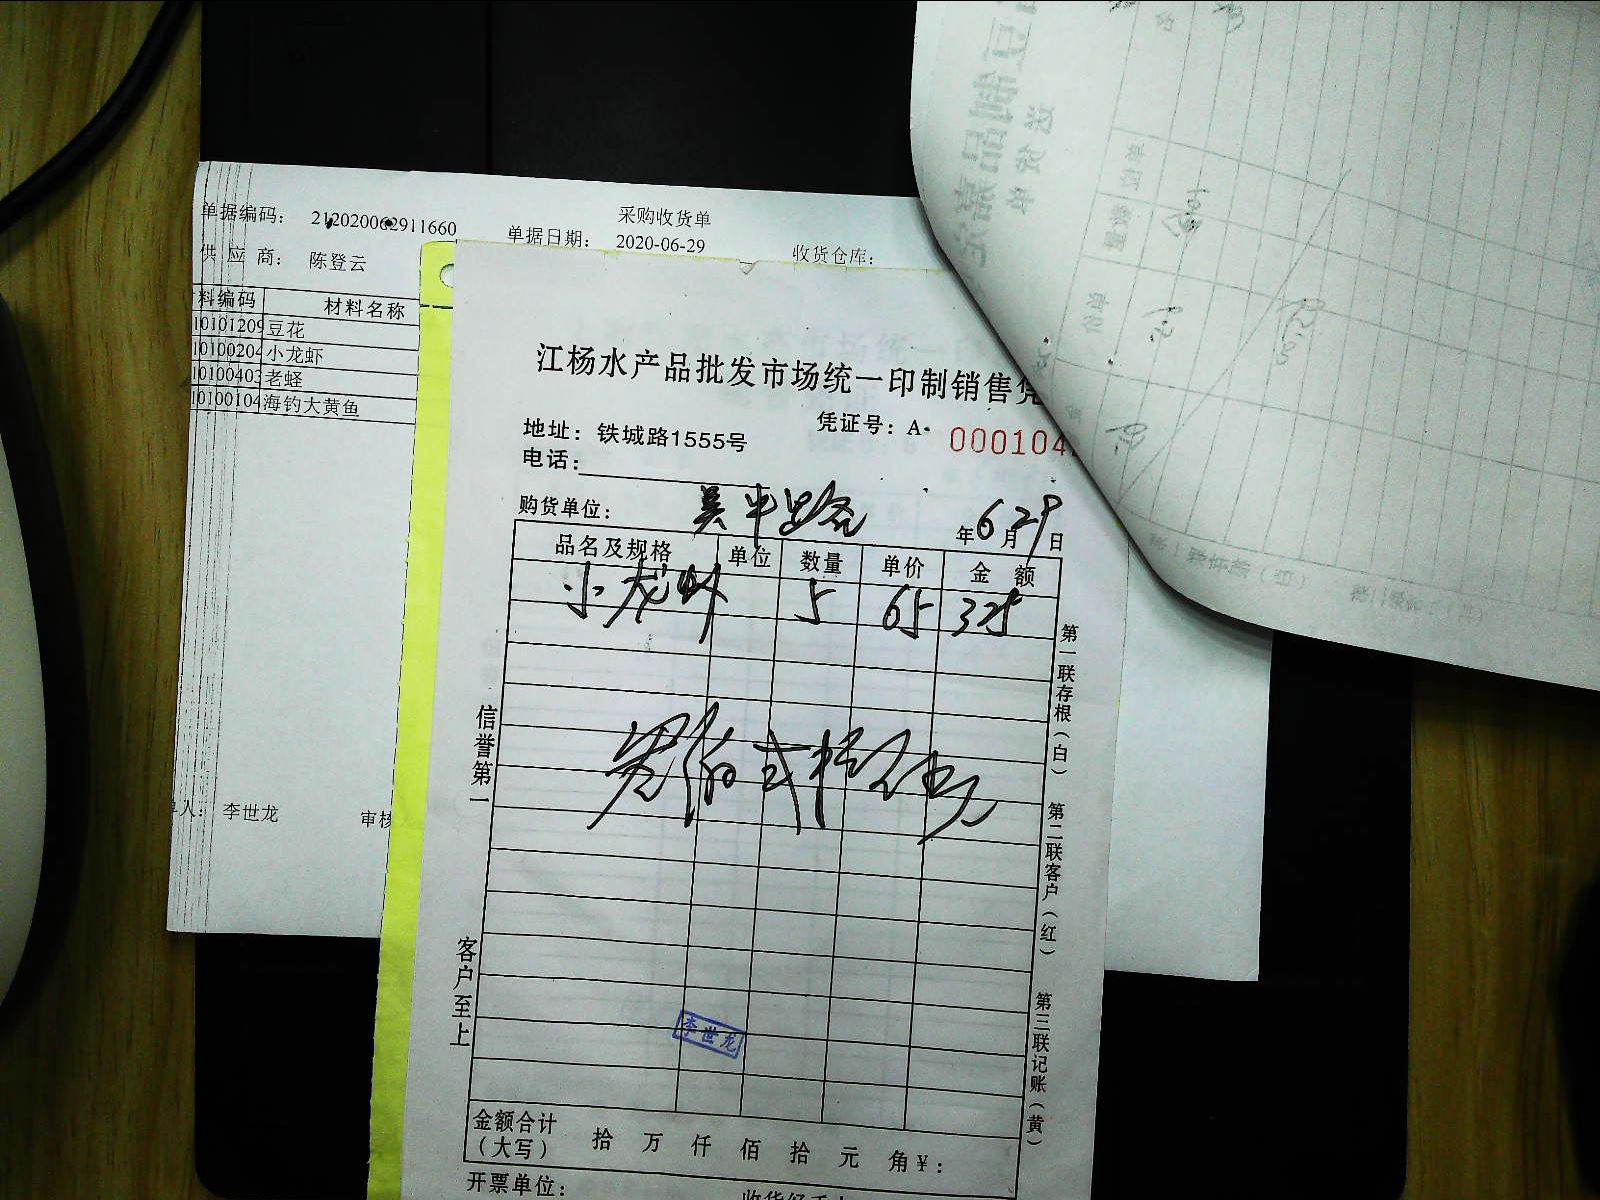 采购收货单
单据编码： 212020062911660 单据日期： 2020-06-29 收货仓库：
供 应 商： 陈登云
料编码 材料名称
10101209 豆花
10100204 小龙虾
10100403 老蛏
10100104 海钓大黄鱼
李世龙 审核
江杨水产品批发市场统一印制销售凭
凭证号：A- 000104
地址：铁城路1555号
电话：
购货单位： 吴中路 年 6 月 29 日
品名及规格 单位 数量 单价 金 额
小龙虾 5 65 325
信誉第一
客户至上
第一联存根（白） 第二联客户（红） 第三联记账（黄）
李世龙
金额合计（大写） 拾 万 仟 佰 拾 元 角￥：
开票单位：
送货单
单位
数量
单价